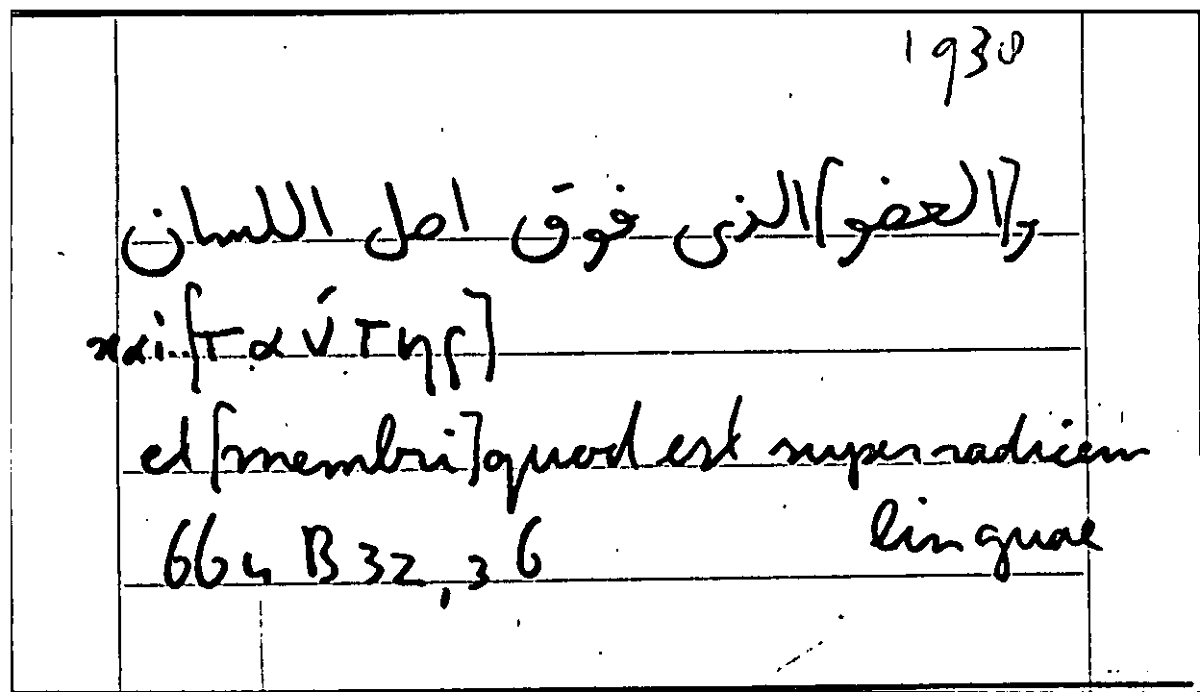 1930
و[العضو]الذى فوق اصل اللسان
καὶ..[ταύτης]
et [membri] quod est super radicem
linguae
664 B 32, 36